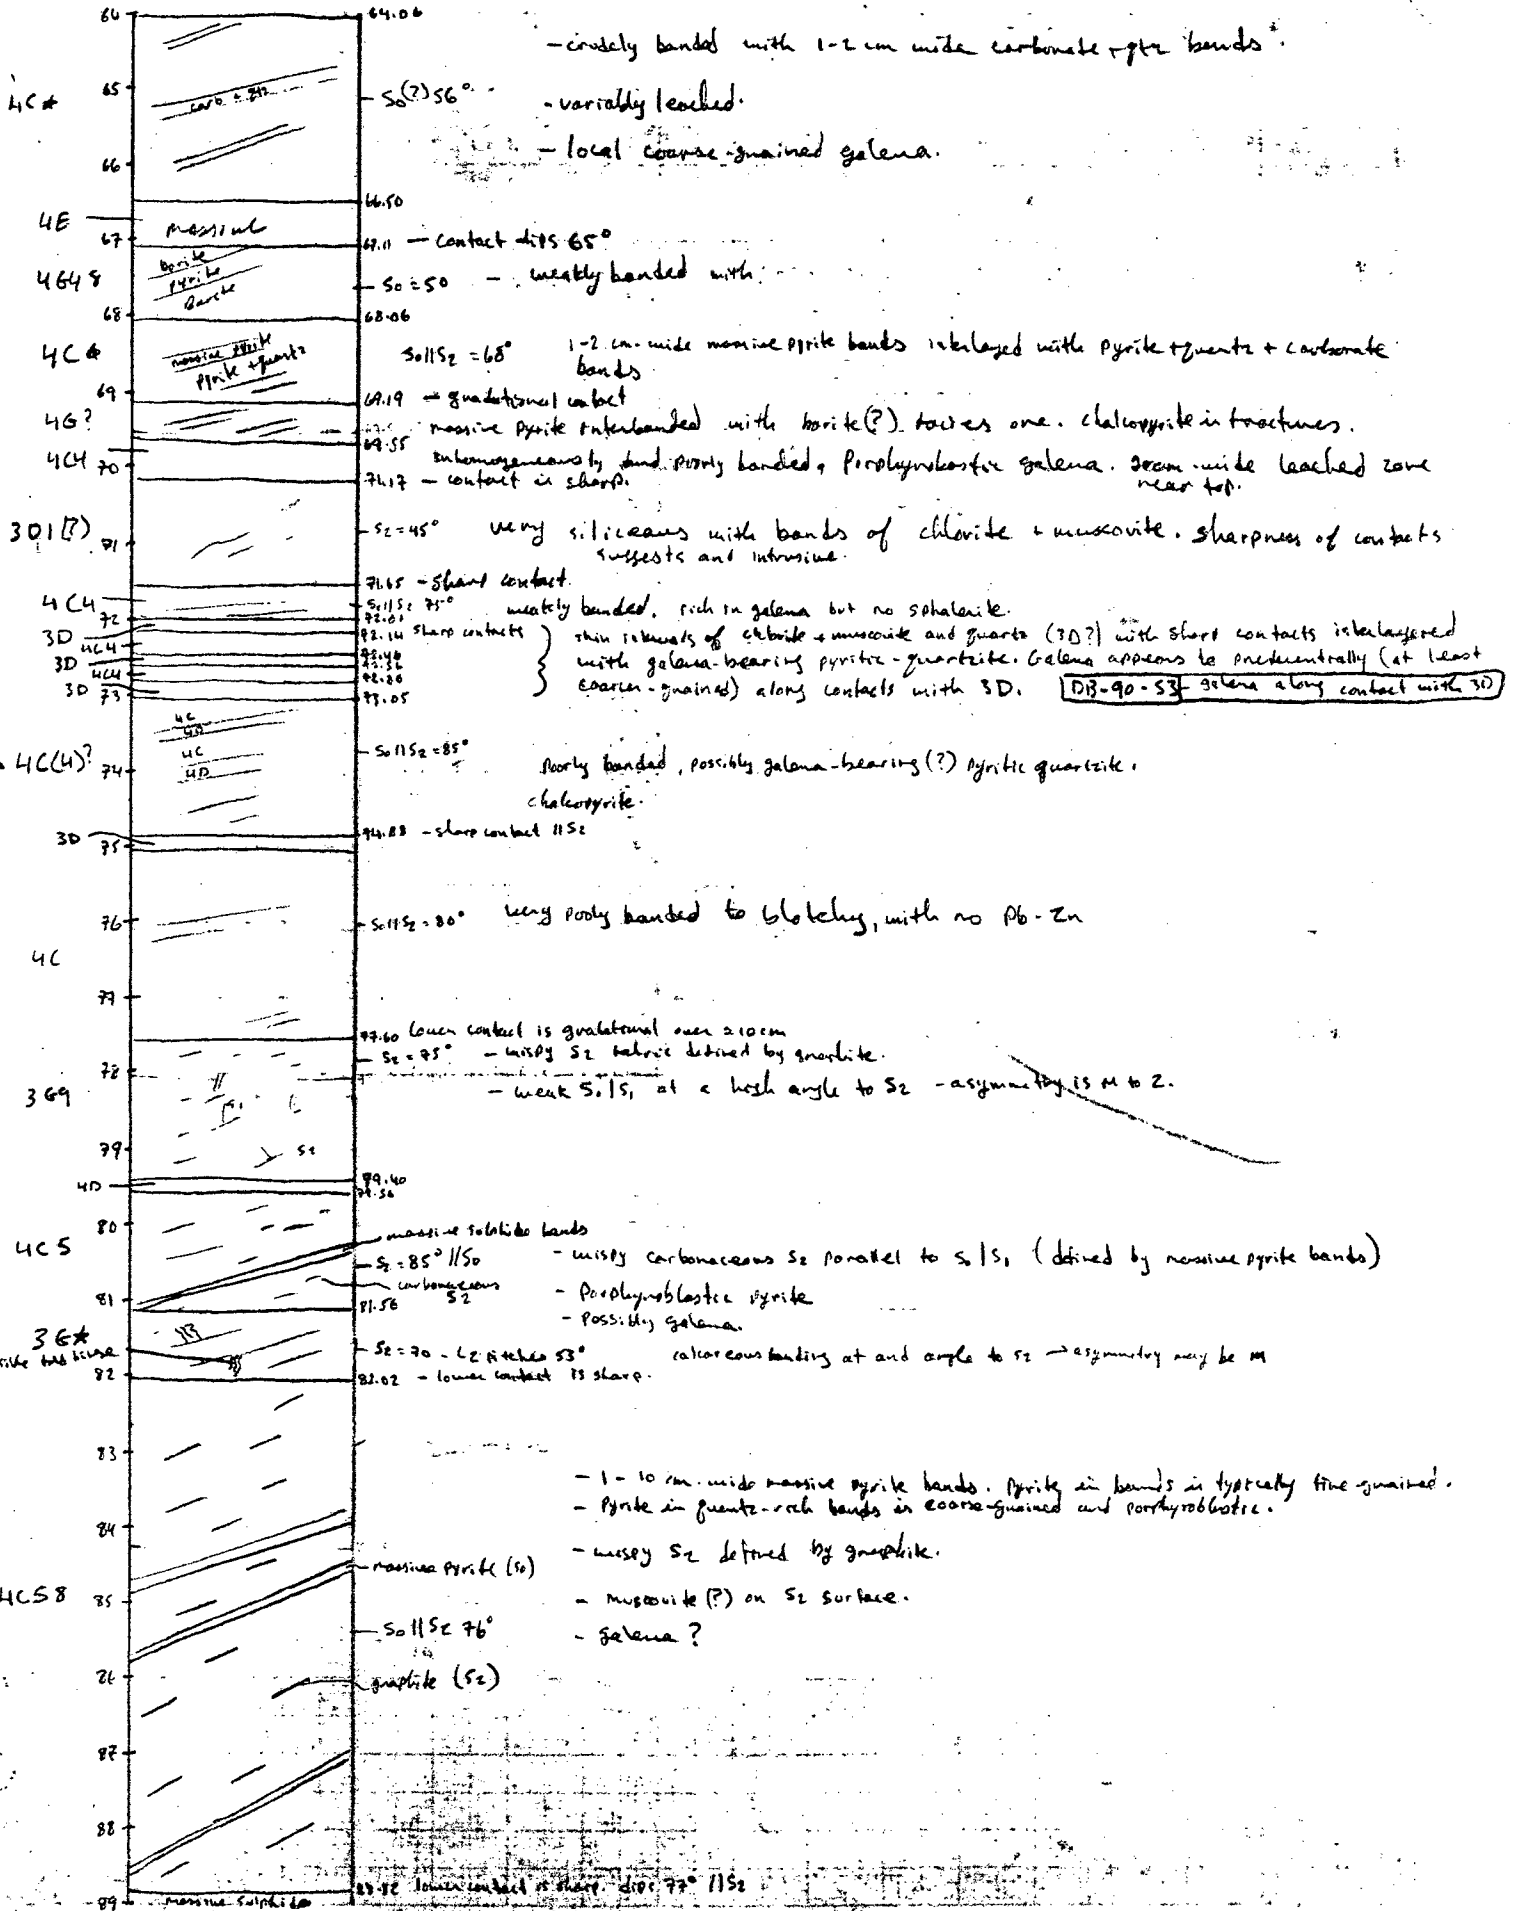 64 64.06
- crudely banded with 1-2 cm wide carbonate + qtz bands.
4C* 65 carb + qtz - S0(?) 56° - variably leached.
66 - local coarse-grained galena.
66.50
4E 67 massive 67.11 - contact dips 65°
4G48 barite pyrite Barite - S0 = 50 - weakly banded with
68 68.06
4C* massive pyrite S0||S2 = 68° 1-2 cm-wide massive pyrite bands interlayed with pyrite + quartz + carbonate
pyrite + quartz bands
69 69.19 - gradational contact
4G? massive pyrite interbanded with barite(?) facies one. chalcopyrite in fractures.
69.55
4C4 70 inhomogeneously and poorly banded, Porphyroblastic galena. cm-wide leached zone
- contact is sharp. near top.
3D1(?) 71 - S2 = 45° very siliceous with bands of chlorite + muscovite. Sharpness of contacts
suggests and intrusive.
71.65 - sharp contact.
4C4 - S0||S2 75° weakly banded, rich in galena but no sphalerite.
72 72.01
3D 72.14 sharp contacts thin intervals of chlorite + muscovite and quartz (3D?) with sharp contacts interlayered
4C4
3D with galena-bearing pyritic-quartzite. Galena appears to (at least
4C4 72.86
3D 73 73.05 coarser-grained) along contacts with 3D. DB-90-53 - galena along contact with 3D
4C
4D
4C(4)? 74 4C - S0||S2 = 85° Poorly banded, possibly galena-bearing(?) pyritic quartzite.
4D
chalcopyrite.
3D 75 74.88 - sharp contact ||S2
76 - S0||S2 = 80° very pooly banded to blotchy, with no Pb-Zn
4C
77
77.60 lower contact is gradational over ≥10cm
78 - S2 = 75° - wispy S2 fabric defined by graphite.
3G9 - weak S0/S1 at a high angle to S2 - asymmetry is M to Z.
79 S2
79.40
4D 79.56
80 massive sulphide bands
4C5 - S2 = 85° //S0 - wispy carbonaceous S2 parallel to S0/S1 (defined by massive pyrite bands)
carbonaceous S2 - Porphyroblastic pyrite
81 81.56 - Possibly galena.
3G*
- S2 = 70 - L2 pitches 53° calcareous banding at and angle to S2 → asymmetry may be M
82 82.02 - lower contact is sharp.
83
- 1 - 10 cm-wide massive pyrite bands. Pyrite in bands is typically fine-grained.
84 - Pyrite in quartz-rich bands is coarse-grained and porphyroblastic.
- wispy S2 defined by graphite.
massive pyrite (S0)
4C58 85 - muscovite(?) on S2 surface.
- S0||S2 76° - galena?
86 graphite (S2)
87
88
88.82 lower contact is sharp. dips 77° //S2
89 massive sulphide